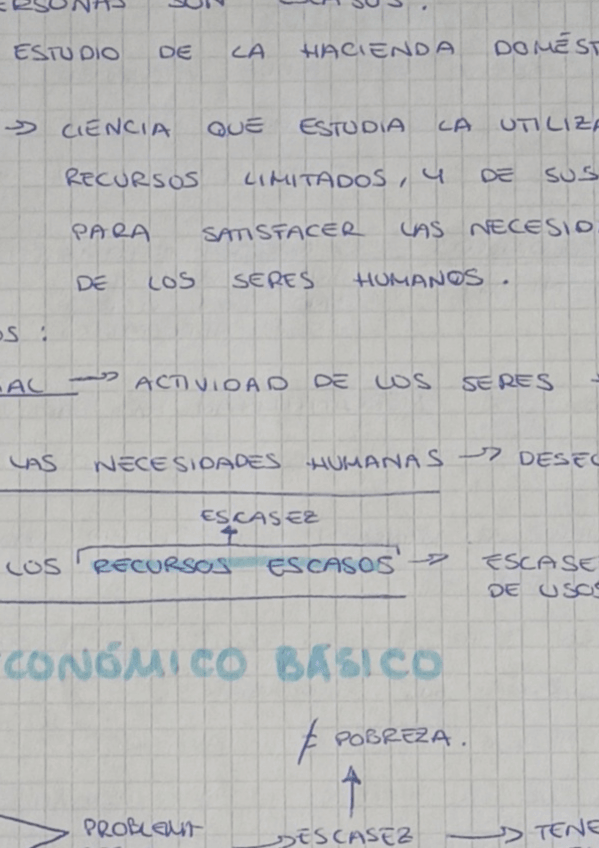 PERSONAS SON ESCASOS.
ESTUDIO DE LA HACIENDA DOMÉST
→ CIENCIA QUE ESTUDIA LA UTILIZA
RECURSOS LIMITADOS, Y DE SUS
PARA SATISFACER LAS NECESID
DE LOS SERES HUMANOS.
OS:
AL → ACTIVIDAD DE LOS SERES
LAS NECESIDADES HUMANAS → DESEO
ESCASEZ
LOS RECURSOS ESCASOS → ESCASE
DE USOS
CONÓMICO BÁSICO
≠ POBREZA.
PROBLEMA → ESCASEZ → TENE